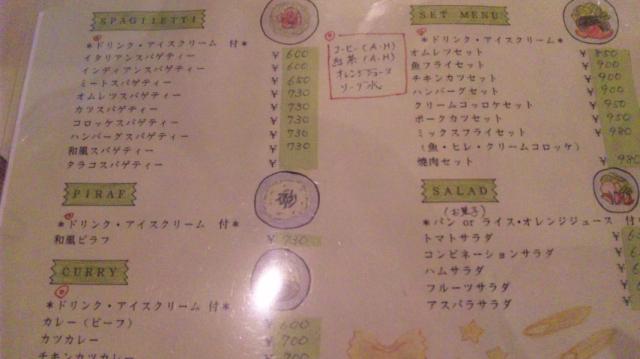 SPAGILETTI
*ドリンク・アイスクリーム 付*
イタリアンスパゲティー ¥600
インディアンスパゲティー ¥600
ミートスパゲティー ¥650
オムレツスパゲティー ¥730
カツスパゲティー ¥730
コロッケスパゲティー ¥730
ハンバーグスパゲティー ¥730
和風スパゲティー ¥730
タラコスパゲティー ¥
PIRAF
*ドリンク・アイスクリーム 付*
和風ピラフ ¥730
CURRY
*ドリンク・アイスクリーム 付*
カレー(ビーフ) ¥600
カツカレー ¥700
チキンカツカレー ¥700
コーヒー(A・H)
紅茶(A・H)
オレンジジュース
ソーダ水
SET MENU
*ドリンク・アイスクリーム*
オムレツセット ¥850
魚フライセット ¥900
チキンカツセット ¥900
ハンバーグセット ¥900
クリームコッロケセット ¥950
ポークカツセット ¥950
ミックスフライセット ¥980
(魚・ヒレ・クリームコロッケ)
焼肉セット ¥980
SALAD
(お菓子)
*パン or ライス・オレンジジュース 付
トマトサラダ ¥
コンビネーションサラダ ¥
ハムサラダ ¥
フルーツサラダ ¥
アスパラサラダ ¥